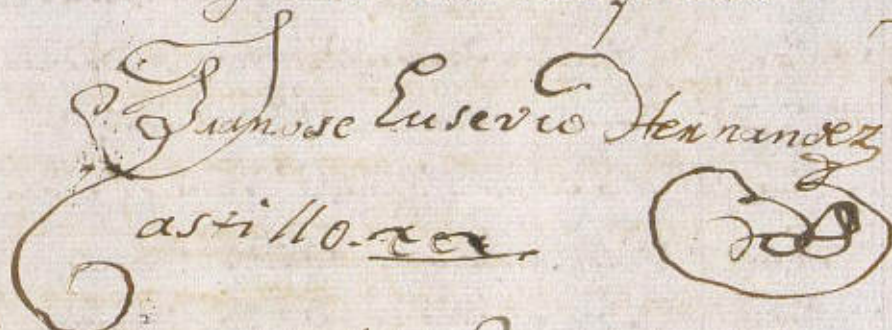 Juan Jose Eusevio Hernandez
Castillo.